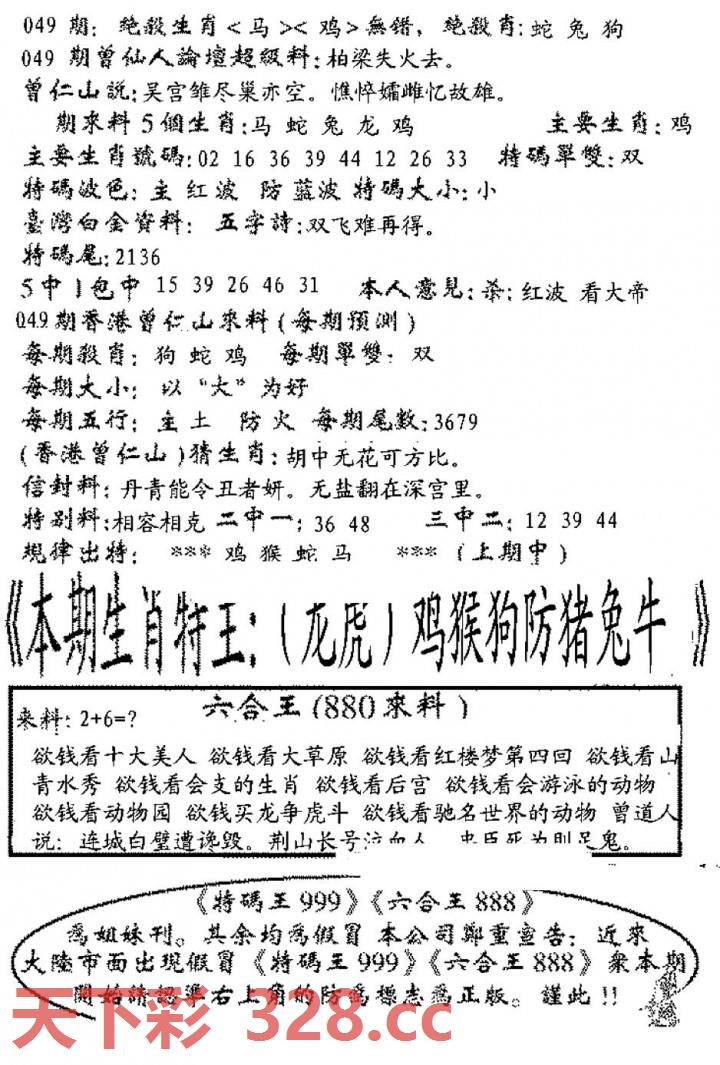 049 期: 絶殺生肖<马><鸡>無錯, 絶殺肖: 蛇 兔 狗
049 期曾仙人論壇超級料: 柏梁失火去。
曾仁山説: 吴宫雏尽巢亦空。憔悴孀雌忆故雄。
期來料5個生肖: 马 蛇 兔 龙 鸡 主要生肖: 鸡
主要生肖號碼: 02 16 36 39 44 12 26 33 特碼單雙: 双
特碼波色: 主 红波 防 蓝波 特碼大小: 小
臺灣白金資料: 五字詩: 双飞难再得。
特碼尾: 2136
5中1包中 15 39 26 46 31 本人意見: 杀: 红波 看大帝
049期香港曾仁山來料(每期预测)
每期殺肖: 狗 蛇 鸡 每期單雙: 双
每期大小: 以“大”为好
每期五行: 主 土 防 火 每期尾數: 3679
(香港曾仁山)猜生肖: 胡中无花可方比。
信封料: 丹青能令丑者妍。无盐翻在深宫里。
特别料: 相容相克 二中一: 36 48 三中二: 12 39 44
規律出特: *** 鸡 猴 蛇 马 *** (上期中)
《本期生肖特王: (龙虎) 鸡猴狗防猪兔牛 》
來料: 2+6=? 六合王(880來料)
欲钱看十大美人 欲钱看大草原 欲钱看红楼梦第四回 欲钱看山
青水秀 欲钱看会支的生肖 欲钱看后宫 欲钱看会游泳的动物
欲钱看动物园 欲钱买龙争虎斗 欲钱看驰名世界的动物 曾道人
说: 连城白璧遭谗毁。荆山长号泣血人 忠臣死为刖足鬼。
《特碼王999》《六合王888》
為姐妹刊。其余均為假冒 本公司鄭重宣告: 近來
大陸市面出現假冒 《特碼王999》《六合王888》 衆本期
開始請認準右上角的防為標志為正版。謹此!!
天下彩 328.cc